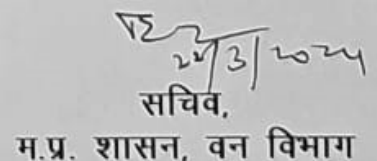 22/3/2024
सचिव,
म.प्र. शासन, वन विभाग